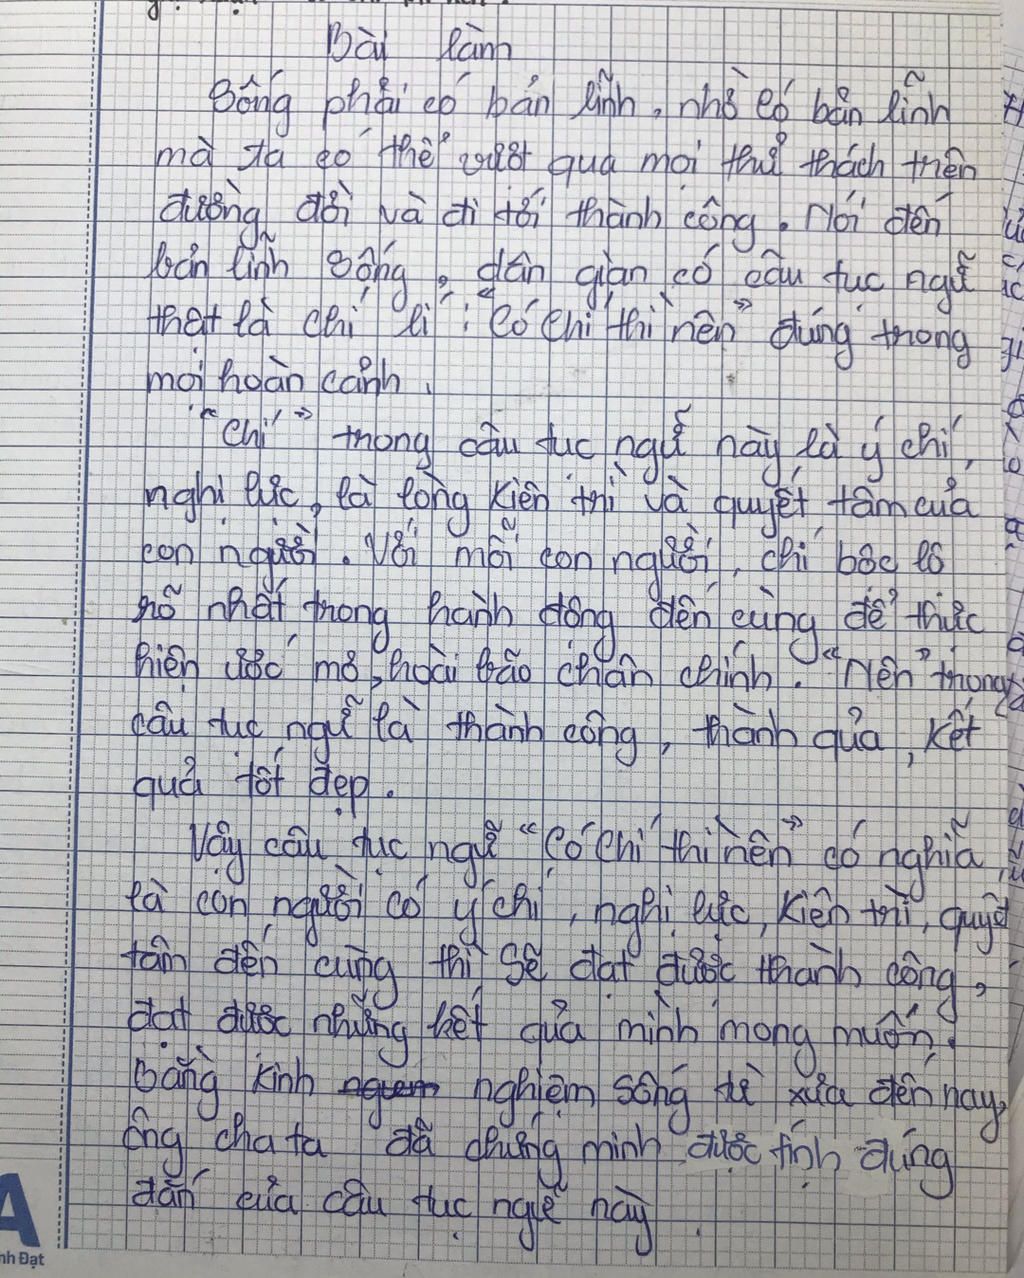 Bài làm
Sống phải có bản lĩnh, nhờ có bản lĩnh
mà ta có thể vượt qua mọi thử thách trên
đường đời và đi tới thành công. Nói đến
bản lĩnh sống, dân gian có câu tục ngữ
thật là chí lí : "Có chí thì nên" đúng trong
mọi hoàn cảnh.
"Chí" trong câu tục ngữ này là ý chí,
nghị lực, là lòng kiên trì và quyết tâm của
con người. Với mỗi con người, chí bộc lộ
rõ nhất trong hành động đến cùng để thực
hiện ước mơ, hoài bão chân chính. "Nên" trong
câu tục ngữ là thành công, thành quả, kết
quả tốt đẹp.
Vậy câu tục ngữ "Có chí thì nên" có nghĩa
là con người có ý chí, nghị lực, kiên trì, quyết
tâm đến cùng thì sẽ đạt được thành công,
đạt được những kết quả mình mong muốn.
Bằng kinh nghiệm sống từ xưa đến nay,
ông cha ta đã chứng minh được tính đúng
đắn của câu tục ngữ này.
A
nh Đạt